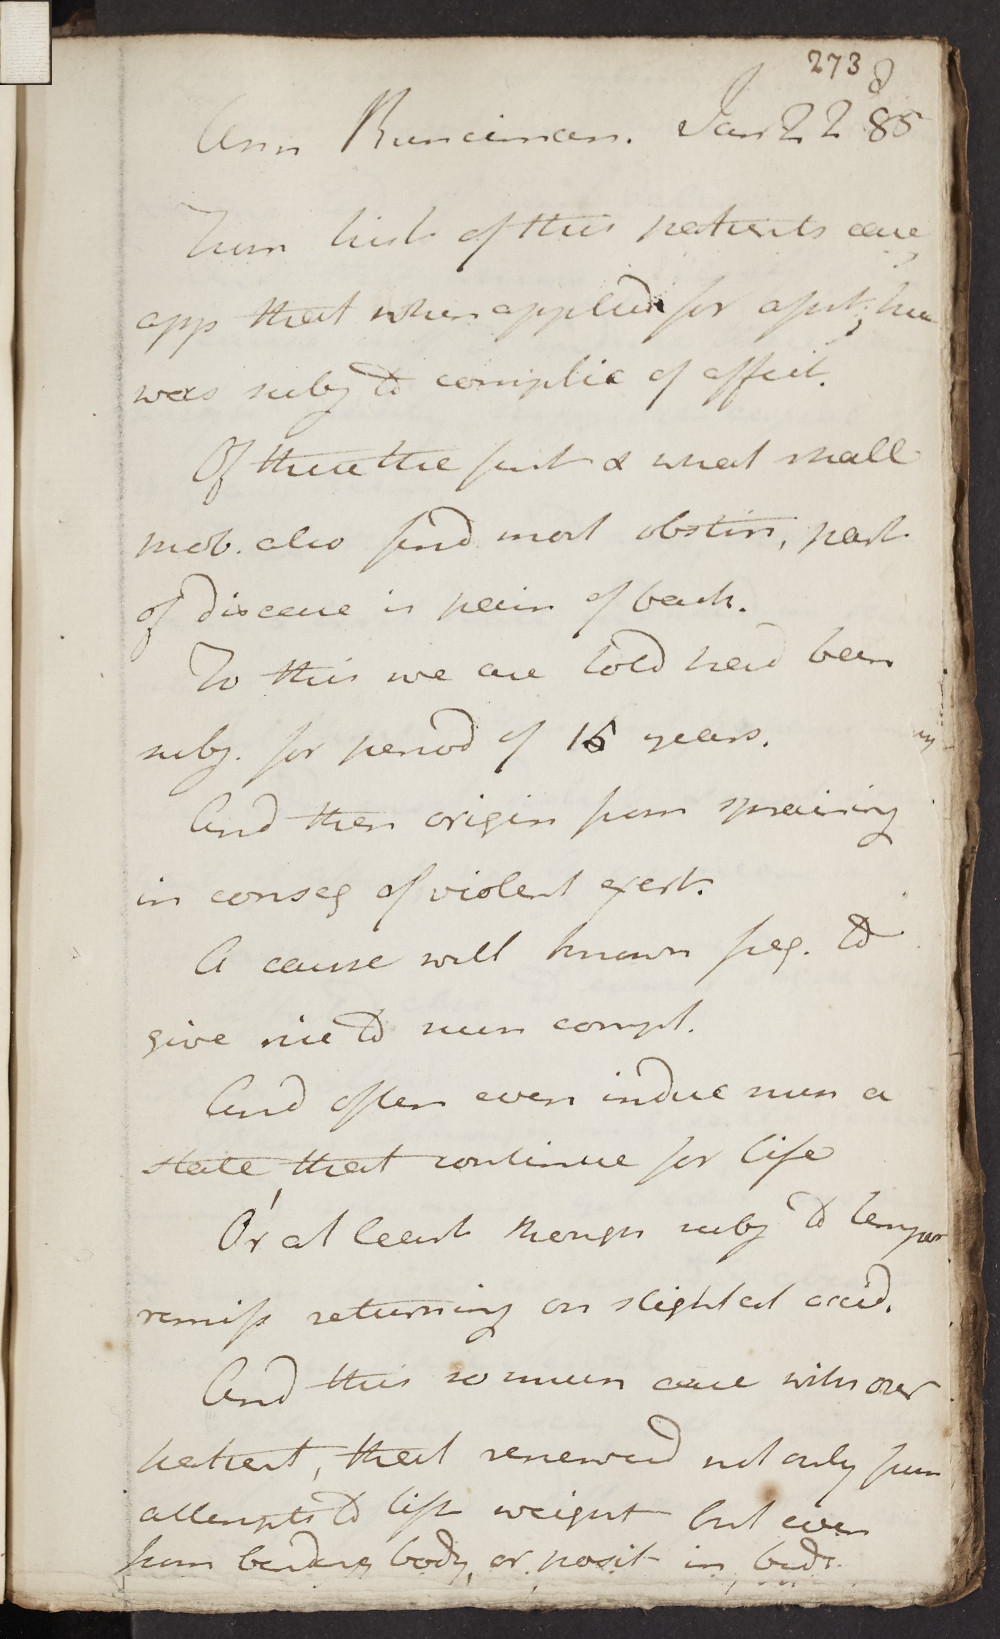 273
Ann Runciman. Jan 22 85
From hist of this patients case,
app that when applied for assist, she
was subj to complic of affect.
Of these the first & what shall
prob. also find most obstin, part
of disease is pain of back.
To this we are told had been
subj. for period of 16 years.
And then origin from spraining
in conseq of violent exert.
A cause well known freq. to
give rise to such compl.
And often even induce such a
state, that continue for life
Or at least though subj to tempor
remiss returning on slightest accid.
And this so much case with our
patient, that renewed not only from
attempts to lift weight but even
from bending body, or posit in bed.